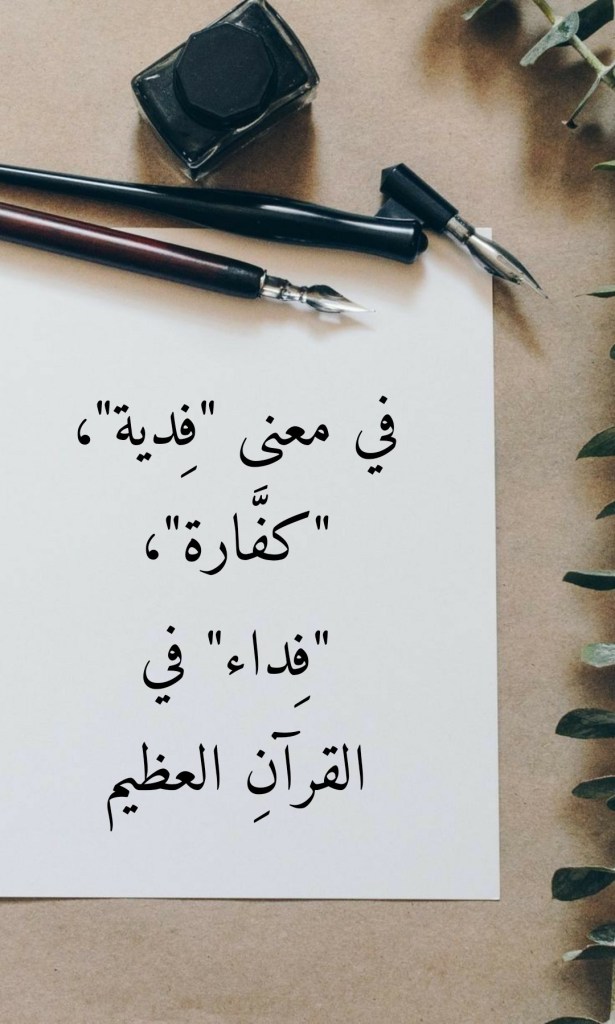 في معنى "فِدية"،
"كفَّارة"،
"فِداء" في
القرآنِ العظيم